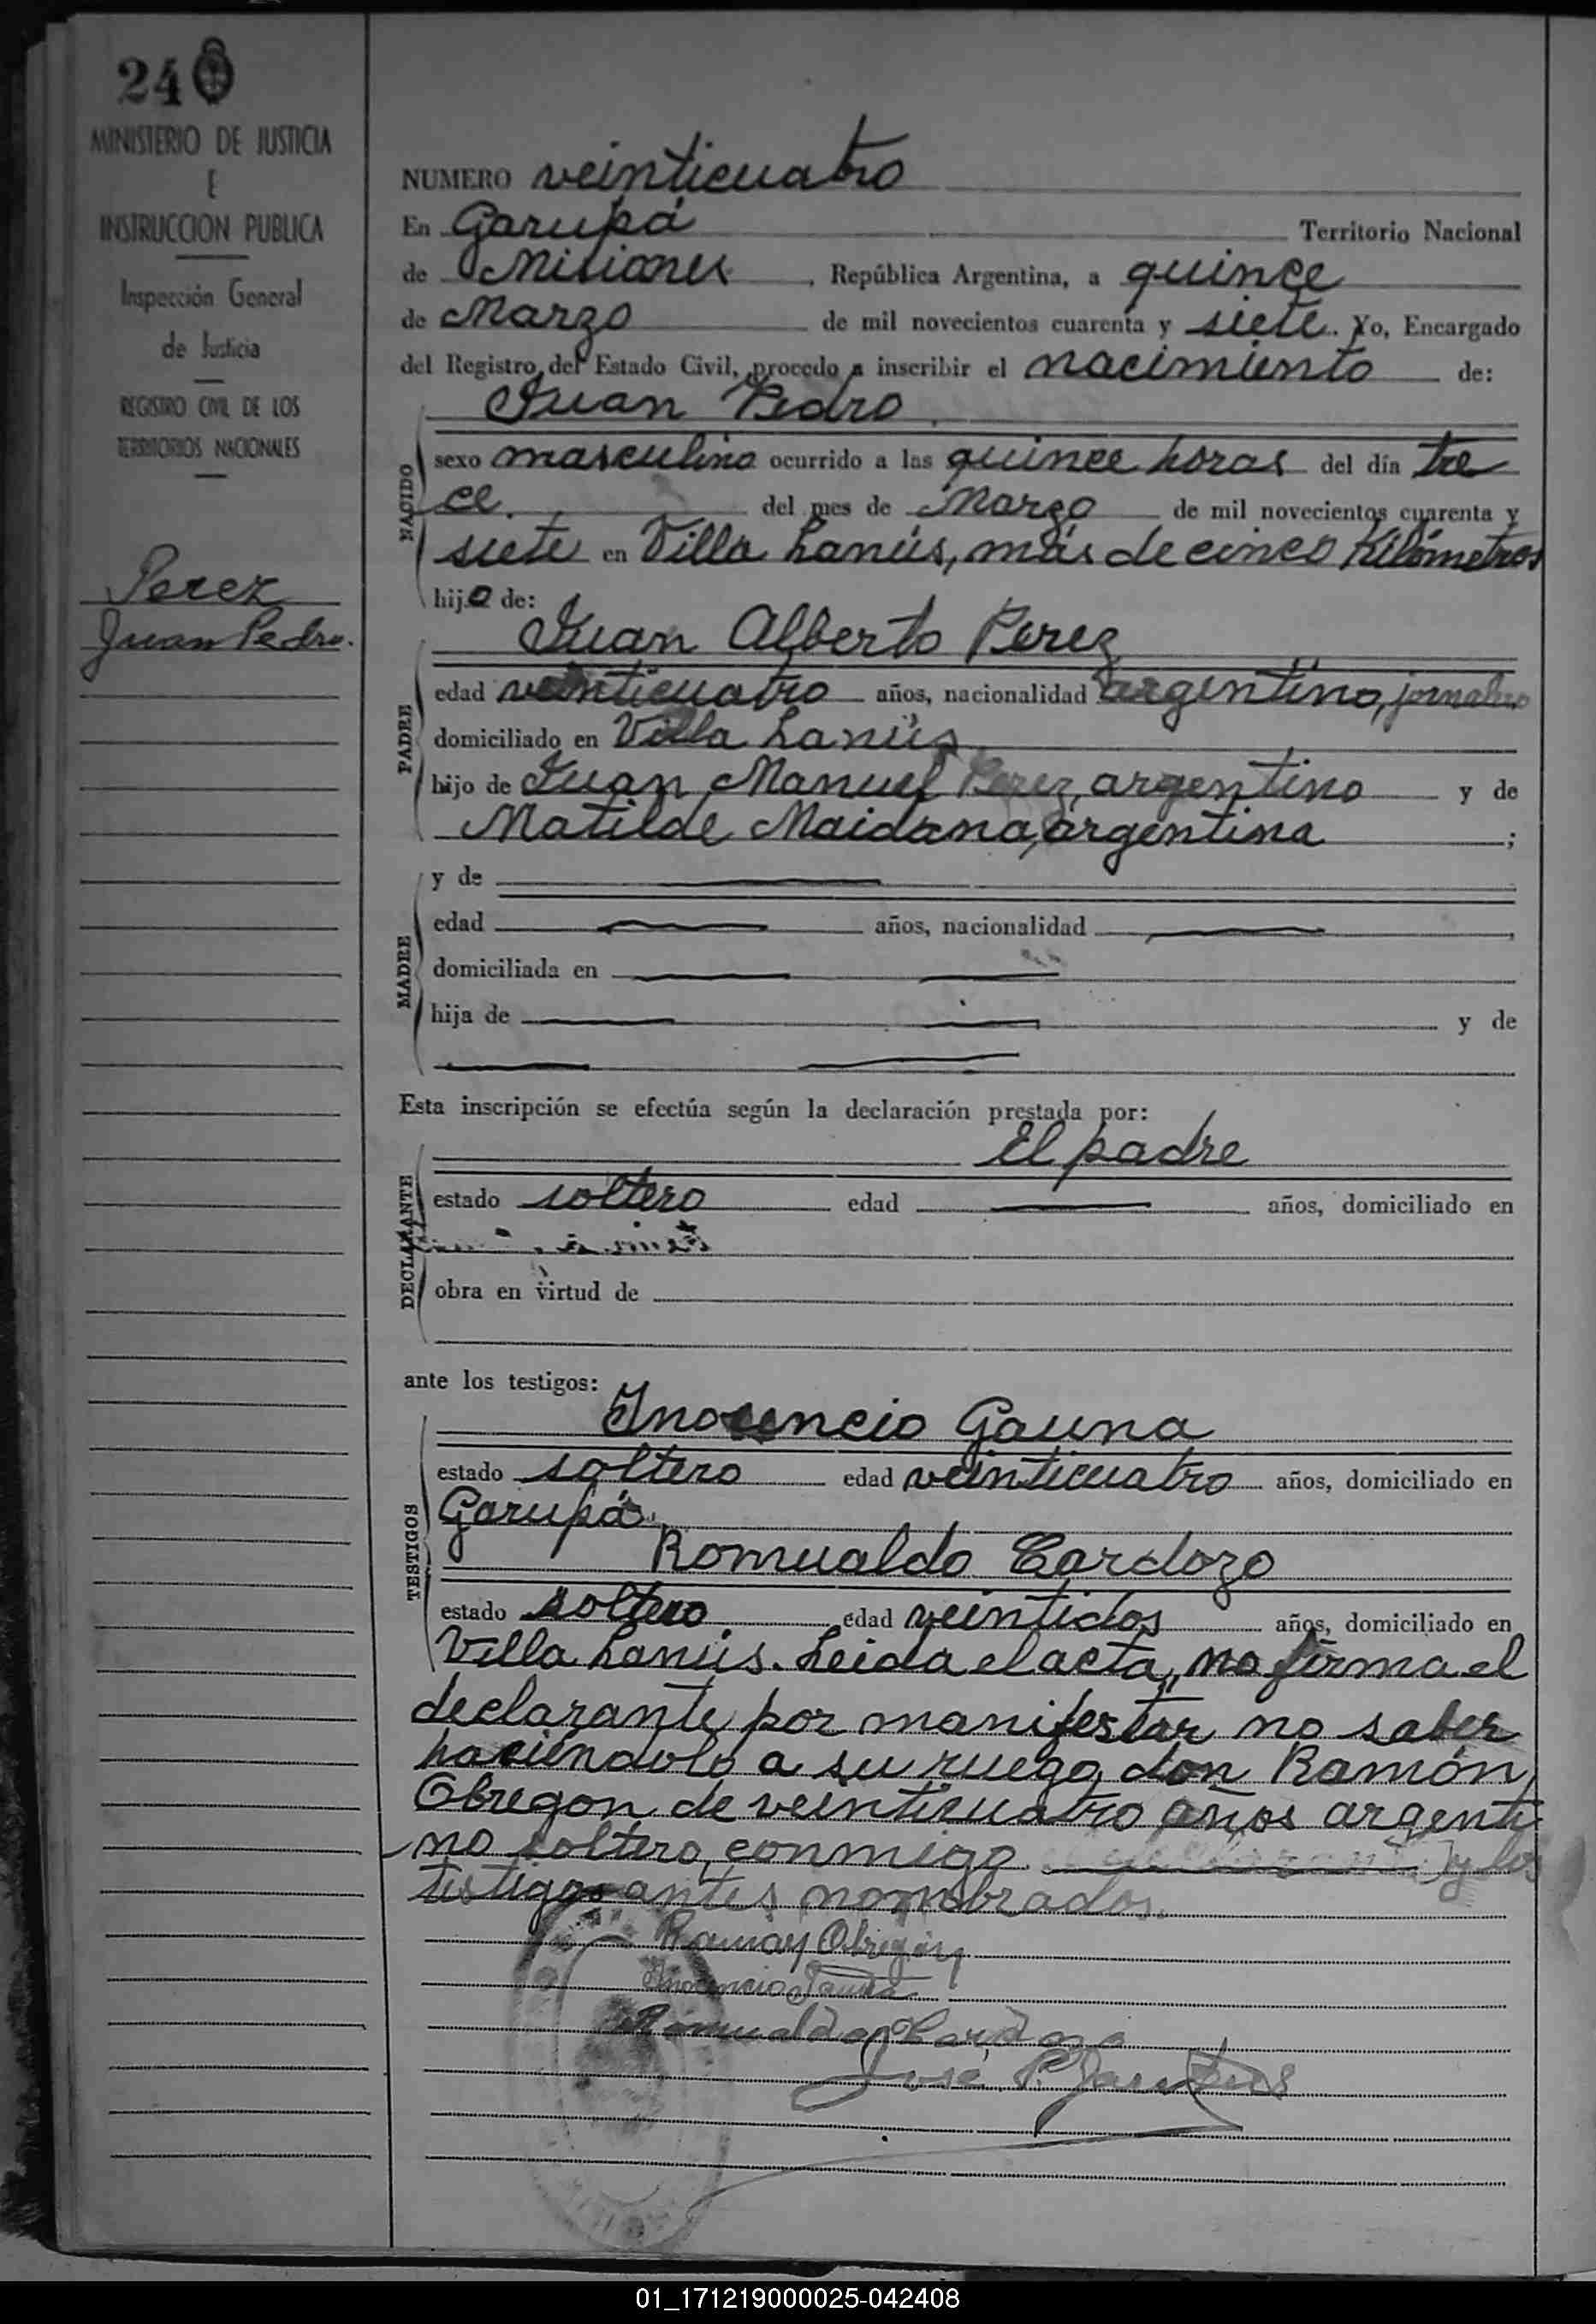 24
MINISTERIO DE JUSTICIA
E
INSTRUCCION PUBLICA
Inspección General
de Justicia
REGISTRO CIVIL DE LOS
TERRITORIOS NACIONALES
Perez
Juan Pedro.
NUMERO veinticuatro
En Garupá Territorio Nacional
de Misiones, República Argentina, a quince
de Marzo de mil novecientos cuarenta y siete. Yo, Encargado
del Registro del Estado Civil, procedo a inscribir el nacimiento de:
Juan Pedro
NACIDO
sexo masculino ocurrido a las quince horas del día tre
ce. del mes de Marzo de mil novecientos cuarenta y
siete en Villa Lanús, más de cinco Kilómetros
hijo de:
Juan Alberto Perez
PADRE
edad veinticuatro años, nacionalidad argentino, jornalero
domiciliado en Villa Lanús
hijo de Juan Manuel Perez, argentino y de
Matilde Maidana, argentina ;
MADRE
y de
edad años, nacionalidad ,
domiciliada en
hija de y de
Esta inscripción se efectúa según la declaración prestada por:
El padre
DECLARANTE
estado soltero edad años, domiciliado en
obra en virtud de
ante los testigos:
Inocencio Gauna
TESTIGOS
estado soltero edad veinticuatro años, domiciliado en
Garupá.
Romualdo Cardozo
estado soltero edad veintidos años, domiciliado en
Villa Lanús. Leida el acta, no firma el
declarante por manifestar no saber
haciéndolo a su ruego don Ramón
Obregon de veinticuatro años argenti
no soltero, conmigo y los
testigos antes nombrados.
Ramón Obregón
Inocencio Gauna
Romualdo Cardozo
José P.
01_171219000025-042408